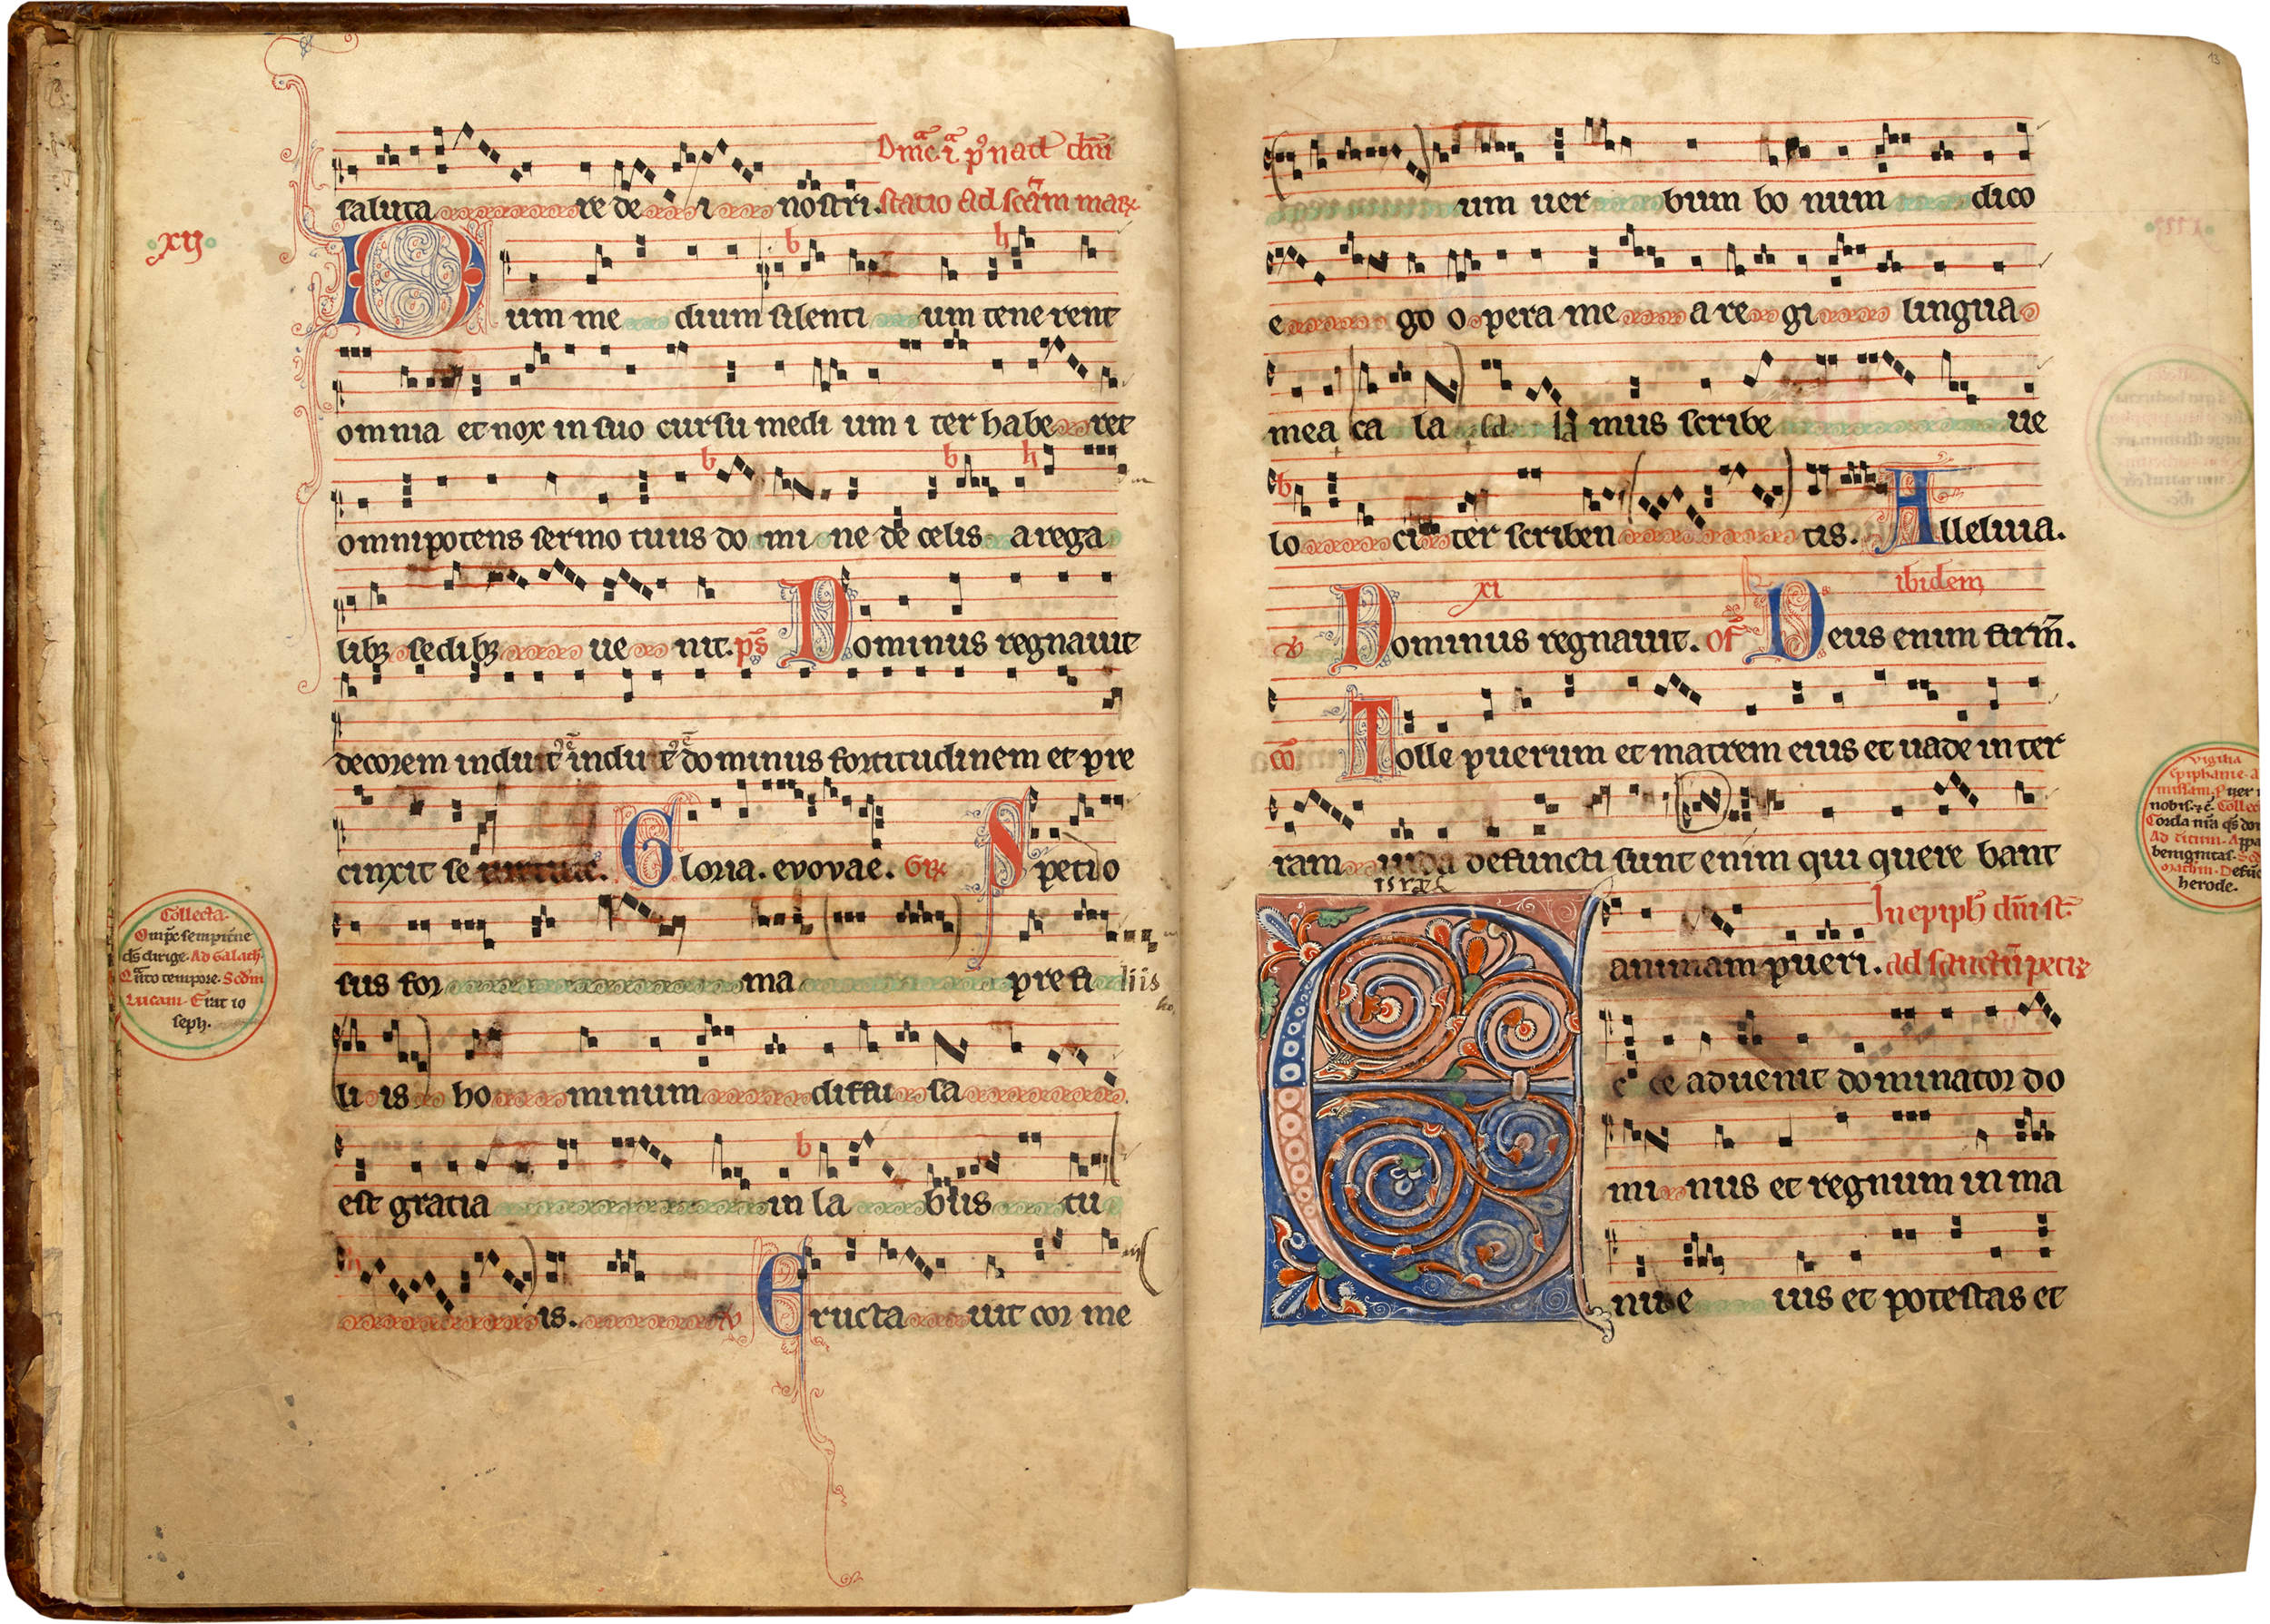 saluta re de i nostri. Dn̄ica i p᷒ nat̄ dn̄i
statio ad sc̄am mar
xij
Dum me dium silenti um tene rent
omnia et nox in suo cursu medi um i ter habe ret
omnipotens sermo tuus do mi ne de celis a rega
libꝫ sedibꝫ ue nit. ps̄ Dominus regnauit
decorem induit induit dominus fortitudinem et pre
cinxit se uirtute. Gloria. evovae. Gr̄ Spetio
sus for ma pre fi liis
Collecta.
Omp̄s sempit̄ne
ds̄ dirige. Ad Galath.
Quāto tempore. Scd̄m
Lucam. Erat io
seph.
li is ho minum diffu sa
est gratia in la biis tu
is. ℣ Eructa uit cor me
13
um uer bum bo num dico
e go o pera me a re gi lingua
mea ca la la mus scribe ue
lo ci ter scriben tis. Alleluia.
xi ibidem
℣ Dominus regnauit. Of̄ Deus enim firm̄.
co̅ Tolle puerum et matrem eius et uade in ter
ram iuda defuncti sunt enim qui quere bant
isrl̄
vigilia
epiphanie. a
missam. Puer
nobis. ⁊c̄. Collec
Corda nr̄a qs̄ do
Ad titum. Appa
benignitas. Sc
Defūc
herode.
animam pueri. In epiph̄ dn̄i st̄.
ad sanctū petr
Ecce aduenit dominator do
mi nus et regnum in ma
nu e ius et potestas et